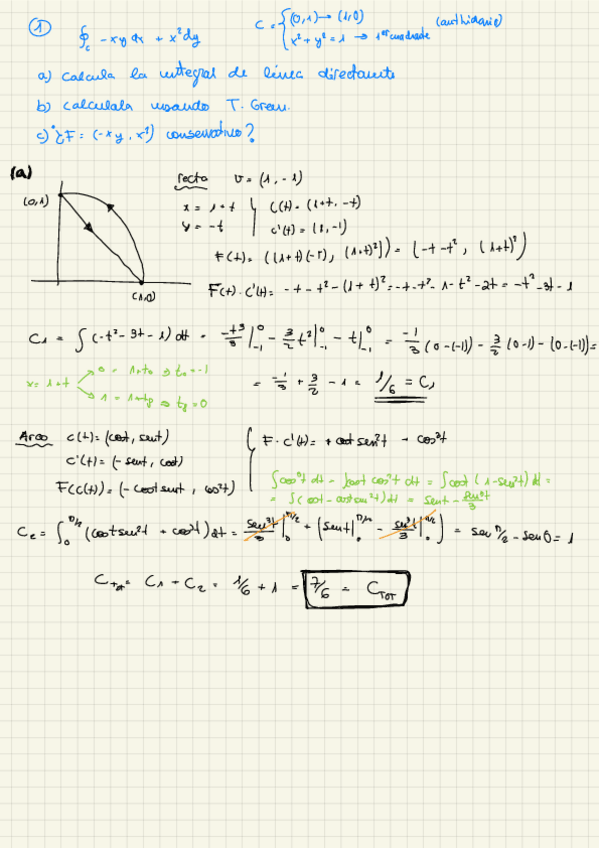 ① ∮c -xy dx + x²dy C = { (0,1) → (1,0) (antihorario)
x² + y² = 1 → 1er cuadrante
a) calcula la integral de línea directamente
b) calculala usando T. Green.
c) ¿F = (-xy, x²) conservativo?
(a)
recta v = (1, -1)
(0,1)
x = 1+t c(t) = (1+t, -t)
y = -t c'(t) = (1, -1)
F(t) = ((1+t)(-t), (1+t)²]) = (-t-t², (1+t)²)
(1,0)
F(t)·c'(t) = -t - t² - (1+t)² = -t - t² - 1 - t² - 2t = -t² - 3t - 1
C₁ = ∫(-t² - 3t - 1) dt = -t³/3 |₋₁⁰ - 3/2 t² |₋₁⁰ - t |₋₁⁰ = -1/3 (0-(-1)) - 3/2 (0-1) - (0-(-1)) =
x = 1+t 0 = 1+t₀ ⇒ t₀ = -1
1 = 1+tf ⇒ tf = 0
= -1/3 + 3/2 - 1 = 1/6 = C₁
Arco c(t) = (cost, sent) F·c'(t) = + cost sen²t + cos³t
c'(t) = (-sent, cost)
F(c(t)) = (-cost sent, cos²t)
∫cos³t dt = ∫cost cos²t dt = ∫cost (1-sen²t) dt =
= ∫(cost - cost sen²t) dt = sent - sen³t/3
C₂ = ∫₀^π/2 (cost sen²t + cos³t) dt = sen³t/3 |₀^π/2 + (sent |₀^π/2 - sen³t/3 |₀^π/2) = sen π/2 - sen 0 = 1
C_TOT = C₁ + C₂ = 1/6 + 1 = 7/6 = C_TOT